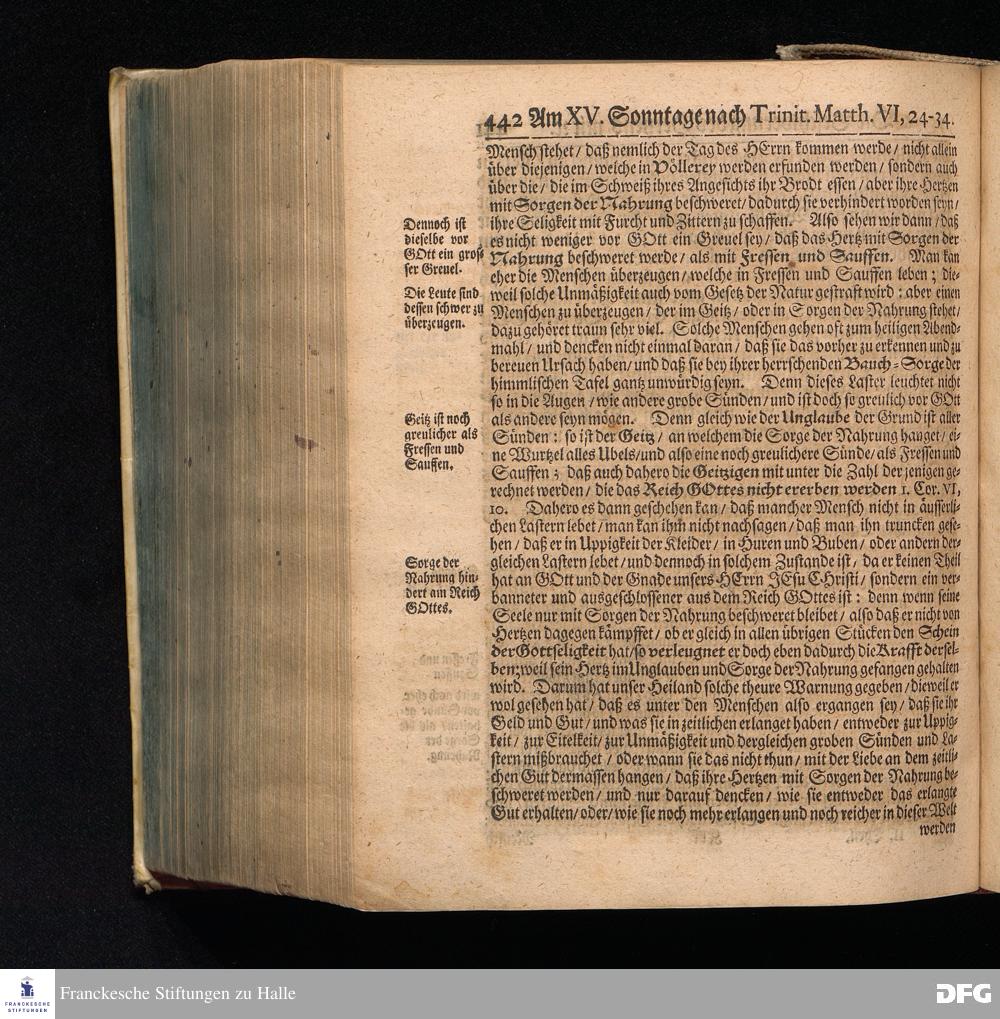 442 Am XV. Sonntage nach Trinit. Matth. VI, 24-34.
Mensch stehet / daß nemlich der Tag des HErrn kommen werde / nicht allein
über diejenigen / welche in Völlerey werden erfunden werden / sondern auch
über die / die im Schweiß ihres Angesichts ihr Brodt essen / aber ihre Hertzen
mit Sorgen der Nahrung beschweret / dadurch sie verhindert worden seyn /
ihre Seligkeit mit Furcht und Zittern zu schaffen. Also sehen wir dann / daß
es nicht weniger vor GOtt ein Greuel sey / daß das Hertz mit Sorgen der
Nahrung beschweret werde / als mit Fressen und Sauffen. Man kan
eher die Menschen überzeugen / welche in Fressen und Sauffen leben ; die-
weil solche Unmäßigkeit auch vom Gesetz der Natur gestraft wird : aber einen
Menschen zu überzeugen / der im Geitz / oder in Sorgen der Nahrung stehet /
dazu gehöret traun sehr viel. Solche Menschen gehen oft zum heiligen Abend-
mahl / und dencken nicht einmal daran / daß sie das vorher zu erkennen und zu
bereuen Ursach haben / und daß sie bey ihrer herrschenden Bauch-Sorge der
himmlischen Tafel gantz unwürdig seyn. Denn dieses Laster leuchtet nicht
so in die Augen / wie andere grobe Sünden / und ist doch so greulich vor GOtt
als andere seyn mögen. Denn gleich wie der Unglaube der Grund ist aller
Sünden : so ist der Geitz / an welchem die Sorge der Nahrung hanget / ei-
ne Wurtzel alles Ubels / und also eine noch greulichere Sünde / als Fressen und
Sauffen ; daß auch dahero die Geitzigen mit unter die Zahl der jenigen ge-
rechnet werden / die das Reich GOttes nicht ererben werden 1. Cor. VI,
10. Dahero es dann geschehen kan / daß mancher Mensch nicht in äusserli-
chen Lastern lebet / man kan ihm nicht nachsagen / daß man ihn truncken gese-
hen / daß er in Uppigkeit der Kleider / in Huren und Buben / oder andern der-
gleichen Lastern lebet / und dennoch in solchem Zustande ist / da er keinen Theil
hat an GOtt und der Gnade unsers HErrn JEsu CHristi / sondern ein ver-
banneter und ausgeschlossener aus dem Reich GOttes ist : denn wenn seine
Seele nur mit Sorgen der Nahrung beschweret bleibet / also daß er nicht von
Hertzen dagegen kämpffet / ob er gleich in allen übrigen Stücken den Schein
der Gottseligkeit hat / so verleugnet er doch eben dadurch die Krafft dersel-
ben ; weil sein Hertz im Unglauben und Sorge der Nahrung gefangen gehalten
wird. Darum hat unser Heiland solche theure Warnung gegeben / dieweil er
wol gesehen hat / daß es unter den Menschen also ergangen sey / daß sie ihr
Geld und Gut / und was sie in zeitlichen erlanget haben / entweder zur Uppig-
keit / zur Eitelkeit / zur Unmäßigkeit und dergleichen groben Sünden und La-
stern mißbrauchet / oder wann sie das nicht thun / mit der Liebe an dem zeitli-
chen Gut dermassen hangen / daß ihre Hertzen mit Sorgen der Nahrung be-
schweret werden / und nur darauf dencken / wie sie entweder das erlangte
Gut erhalten / oder / wie sie noch mehr erlangen und noch reicher in dieser Welt
werden
Dennoch ist
dieselbe vor
GOtt ein gros-
ser Greuel.
Die Leute sind
dessen schwer zu
überzeugen.
Geitz ist noch
greulicher als
Fressen und
Sauffen.
Sorge der
Nahrung hin-
dert am Reich
GOttes.
FRANCKESCHE
STIFTUNGEN
Franckesche Stiftungen zu Halle
DFG